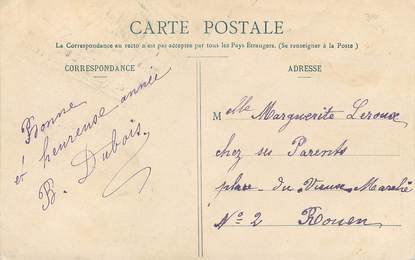 CARTE POSTALE
La Correspondance au recto n'est pas acceptée par tous les Pays Étrangers. (Se renseigner à la Poste)
CORRESPONDANCE
Bonne
et heureuse année
B. Dubois.
ADRESSE
Melle Marguerite Leroux
chez ses Parents
place du Vieux Marché
No 2 Rouen